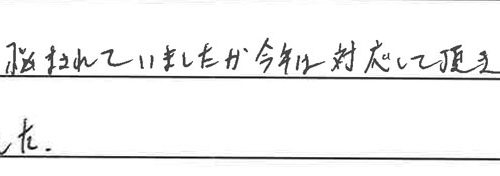 悩まれていましたが今年は対応して頂き
した.